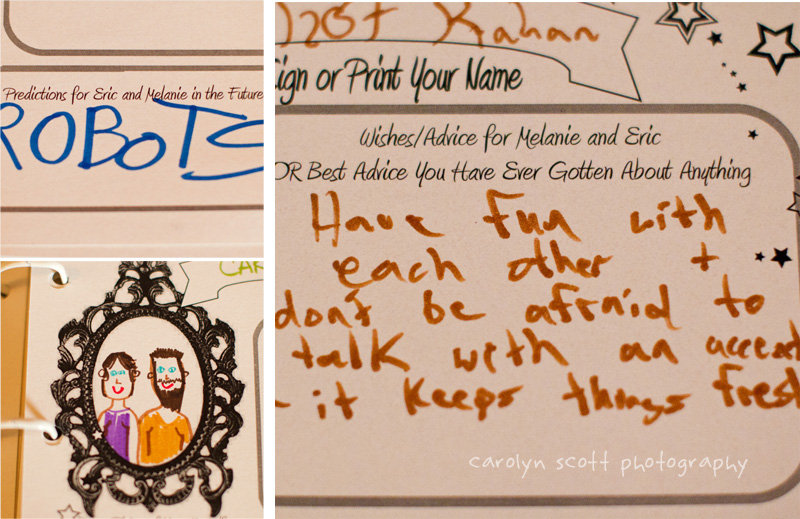 Predictions for Eric and Melanie in the Future
ROBOTS
CAR
Kahan
Sign or Print Your Name
Wishes/Advice for Melanie and Eric
OR Best Advice You Have Ever Gotten About Anything
Have fun with
each other +
don't be afraid to
talk with an accent
- it keeps things fresh
carolyn scott photography